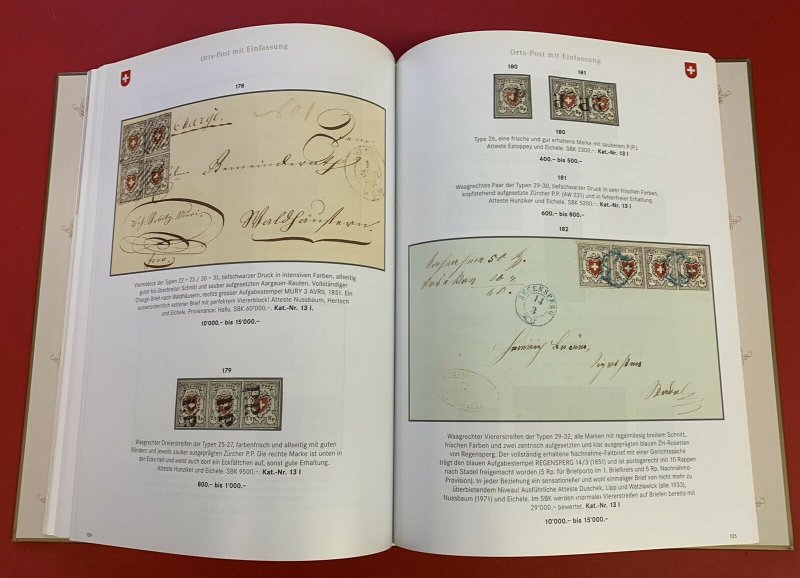 Orts-Post mit Einfassung
178
Chargé.
Dem
Gemeinderath
Waldhäusern.
franco.
Viererblock der Typen 22 + 23 / 30 + 31, tiefschwarzer Druck in intensiven Farben, allseitig
guter bis überbreiter Schnitt und sauber aufgesetzten Aargauer-Rauten. Vollständiger
Chargé-Brief nach Waldhäusern, rechts grosser Aufgabestempel MURY 3 AVRIL 1851. Ein
ausserordentlich seltener Brief mit perfektem Viererblock! Atteste Nussbaum, Hertsch
und Eichele. Provenance: Hallu. SBK 60'000.–. Kat.-Nr. 13 I.
10'000.– bis 15'000.–
179
Waagrechter Dreierstreifen der Typen 25-27, farbenfrisch und allseitig mit guten
Rändern und jeweils sauber ausgeprägten Zürcher P.P. Die rechte Marke ist unten in
der Ecke hell und weist auch dort ein Eckfältchen auf, sonst gute Erhaltung.
Atteste Hunziker und Eichele. SBK 9500.–. Kat.-Nr. 13 I
800.– bis 1'000.–
124
Orts-Post mit Einfassung
180
181
180
Type 26, eine frische und gut erhaltene Marke mit sauberem P.P.J.
Atteste Estoppey und Eichele. SBK 2300.–. Kat.-Nr. 13 I
400.– bis 500.–
181
Waagrechtes Paar der Typen 29-30, tiefschwarzer Druck in sehr frischen Farben,
kopfstehend aufgesetzte Zürcher P.P. (AW 231) und in fehlerfreier Erhaltung.
Atteste Hunziker und Eichele. SBK 5200.–. Kat.-Nr. 13 I
600.– bis 800.–
182
REGENSPERG
14
3
Waagrechter Viererstreifen der Typen 29-32, alle Marken mit regelmässig breitem Schnitt,
frischen Farben und zwei zentrisch aufgesetzten und klar ausgeprägten blauen ZH-Rosetten
von Regensperg. Der vollständig erhaltene Nachnahme-Faltbrief mit einer Gerichtssache
trägt den blauen Aufgabestempel REGENSPERG 14/3 (1851) und ist portogerecht mit 10 Rappen
nach Stadel freigemacht worden (5 Rp. für Briefporto im 1. Briefkreis und 5 Rp. Nachnahme-
Provision). In jeder Beziehung ein sensationeller und wohl einmaliger Brief von nicht mehr
überbietendem Niveau! Ausführliche Atteste Duschek, Lipp und Watzlawick (alle 1933),
Nussbaum (1971) und Eichele. Im SBK werden «normale» Viererstreifen auf Briefen bereits mit
29'000.– bewertet. Kat.-Nr. 13 I
10'000.– bis 15'000.–
125